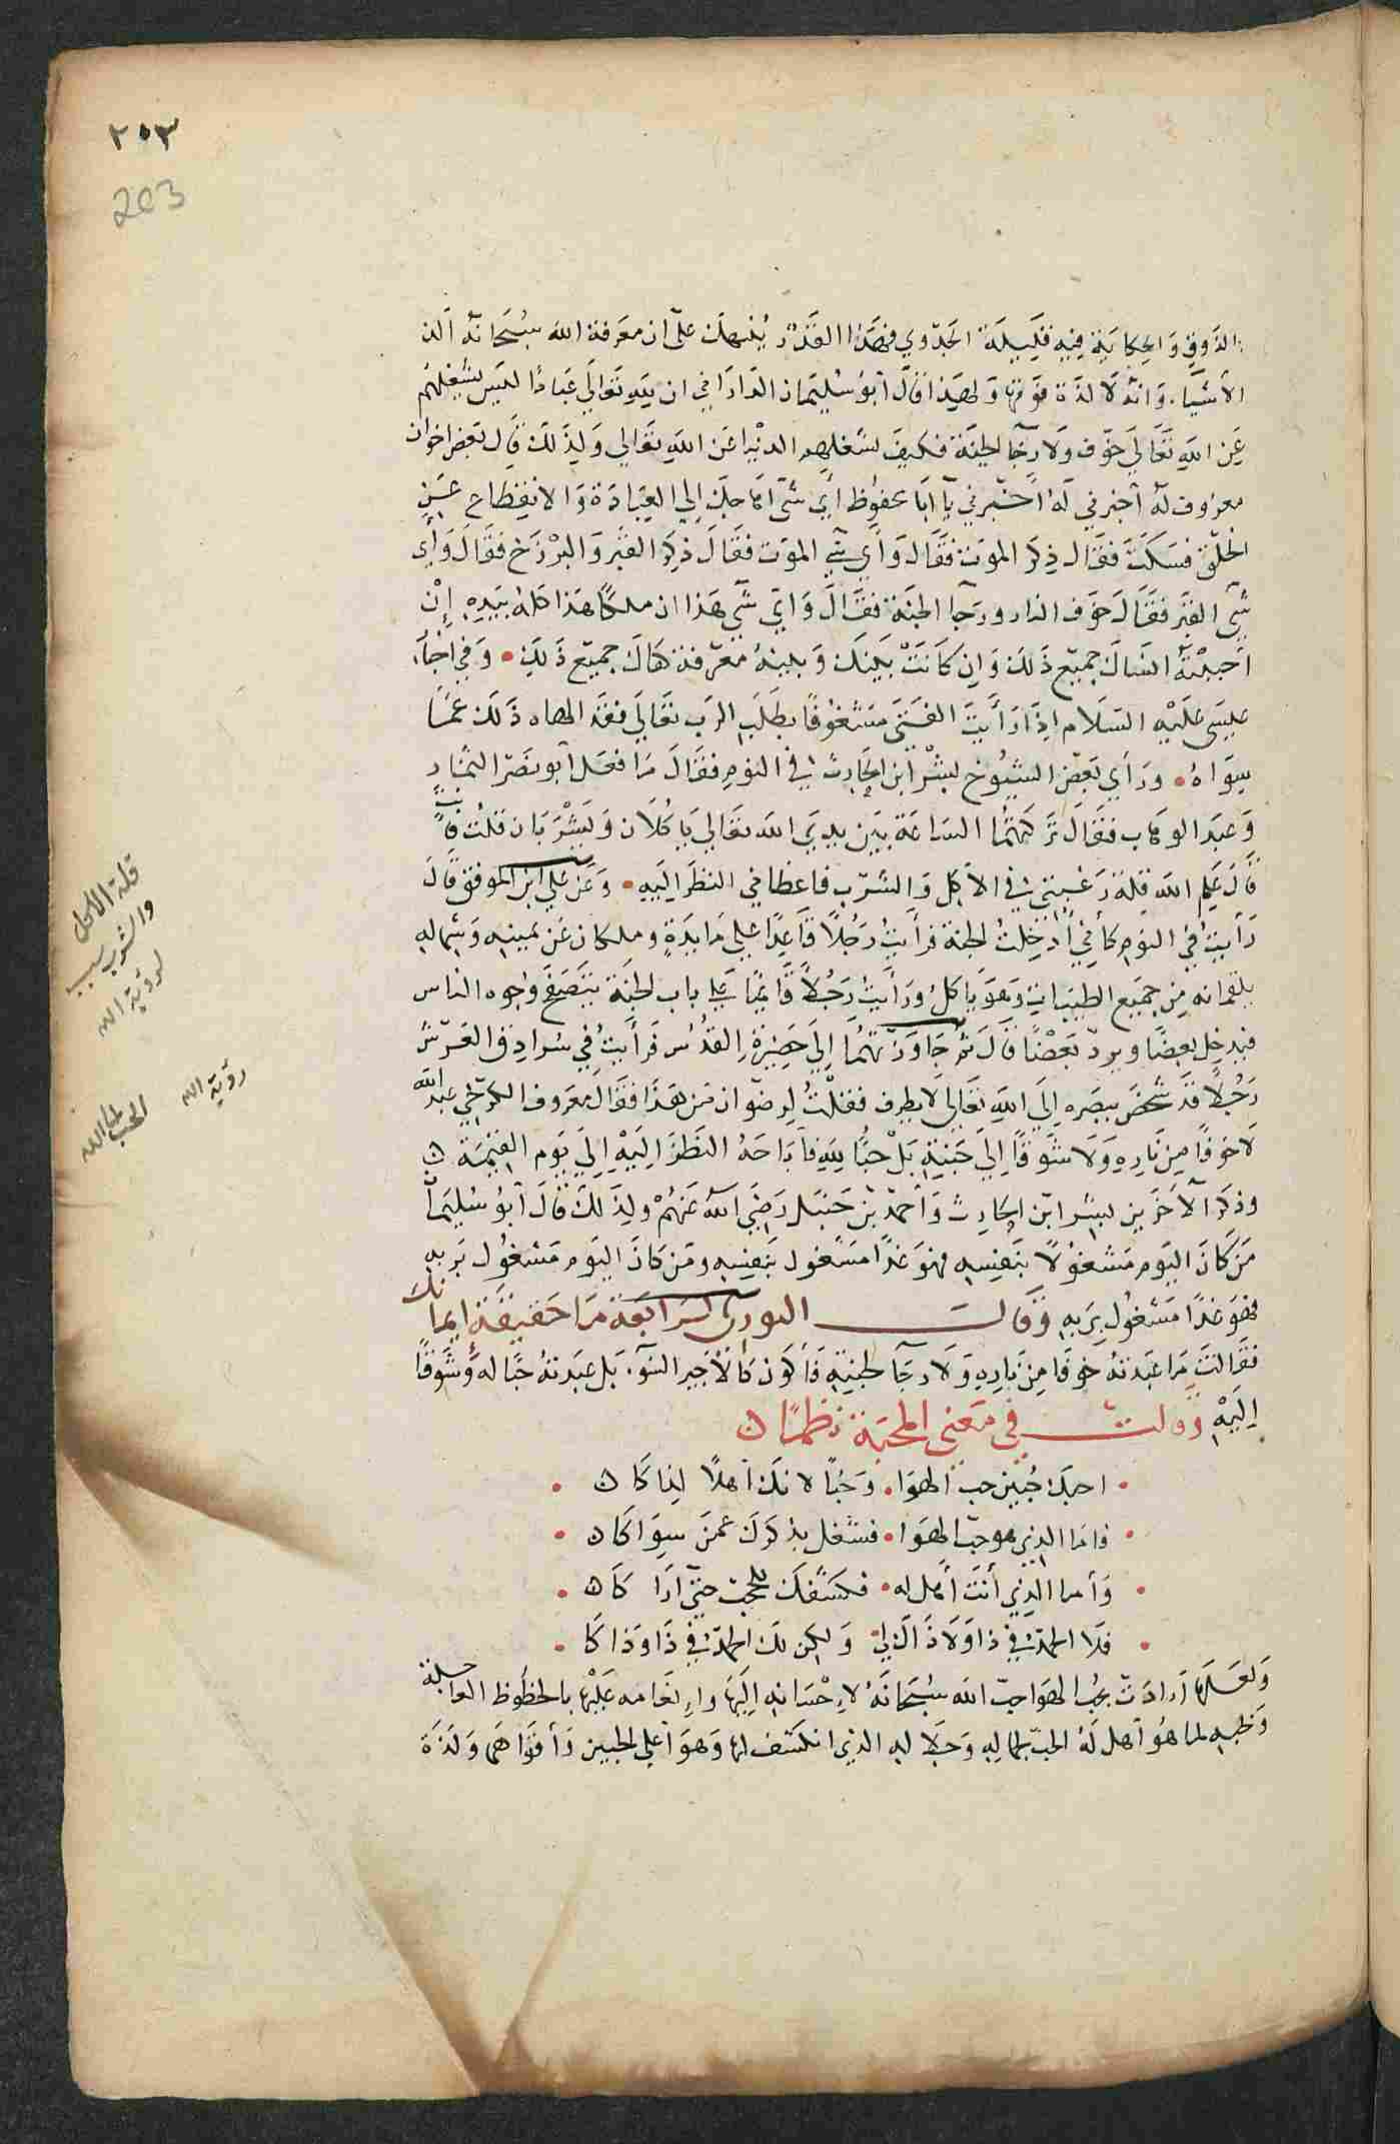 ٢٠٣
203
الذوق والحكاية فيه قليلة الجدوي فهذا القدر ينبهك علي ان معرفة الله سبحانه الذ
الاشياء وانه لا لذة فوقها ولهذا قال ابو سليمان الداراني ان لله تعالي عبادا ليس يشغلهم
عن الله تعالي خوف ولا رجا الجنة فكيف تشغلهم الدنيا عن الله تعالي ولذلك قال بعض اخوان
معروف له اخبرني له اخبرني يا ابا محفوظ اي شي اهاجك الي العبادة والانقطاع عن
الخلق فسكت فقال ذكر الموت فقال واي شي الموت فقال ذكر القبر والبرزخ فقال واي
شي القبر فقال خوف النار ورجا الجنة فقال واي شي هذا ان ملكا هذا كله بيده إن
احببته انساك جميع ذلك وان كانت بينك وبينه معرفة كفاك جميع ذلك • وفي اخبار
عيسي عليه السلام اذا رأيت الفتي مشغوفا بطلب الرب تعالي فقد الهاه ذلك عما
سواه • ورأي بعض الشيوخ بشر ابن الحارث في النوم فقال ما فعل ابو نصر التمار
وعبد الوهاب فقال تركتهما الساعة بين يدي الله تعالي ياكلان ويشربان قلت فأنت
قال علم الله قلة رغبتي في الاكل والشرب فاعطاني النظر اليه • وعن علي ابن الموفق قال
رأيت في النوم كأني أدخلت الجنة فرأيت رجلا قاعدا علي مايدة وملكان عن يمينه وشماله
يلقمانه من جميع الطيبات وهو ياكل ورأيت رجلا قايما علي باب الجنة يتصفح وجوه الناس
فيدخل بعضا ويرد بعضا قال ثم جاوزتهما الي حضيرة القدس فرأيت في سرادق العرش
رجلا قد شخص ببصره الي الله تعالي لا يطرف فقلت لرضوان من هذا فقال معروف الكرخي عبد الله
لا خوفا من ناره ولا شوقا الي جنته بل حبا لله فاباحه النظر اليه الي يوم القيمة
وذكر الآخرين بشر ابن الحارث واحمد بن حنبل رضي الله عنهم ولذلك قال ابو سليمان
من كان اليوم مشغولا بنفسه فهو غدا مشغول بنفسه ومن كان اليوم مشغول بربه
فهو غدا مشغول بربه وقالت الثوري لرابعة ما حقيقة ايمانك
فقالت ما عبدته خوفا من ناره ولا رجآ لجنته فأكون كالأجير السوء بل عبدته حبا له وشوقا
اليه وقالت في معني المحبة نظما
• احبك حبين حب الهوا • وحبا لانك اهلا لذاكا •
• فاما الذي هو حب الهوا • فشغلي بذكرك عمن سواكا •
• وأما الذي أنت أهل له • فكشفك للحجب حتي أراكا •
• فلا الحمد في ذا ولا ذاك لي ولكن لك الحمد في ذا وذاكا •
ولعلها أرادت بحب الهوا حب الله سبحانه لاحسانه اليها وإنعامه عليها بالحظوظ العاجلة
وبحبه لما هو أهل له الحب لجماله وجلاله الذي انكشف لها وهو أعلي الحبين وأقواهما ولذة
قلة الاكل
والشرب سبب
لروية الله
روية الله
الحب لله